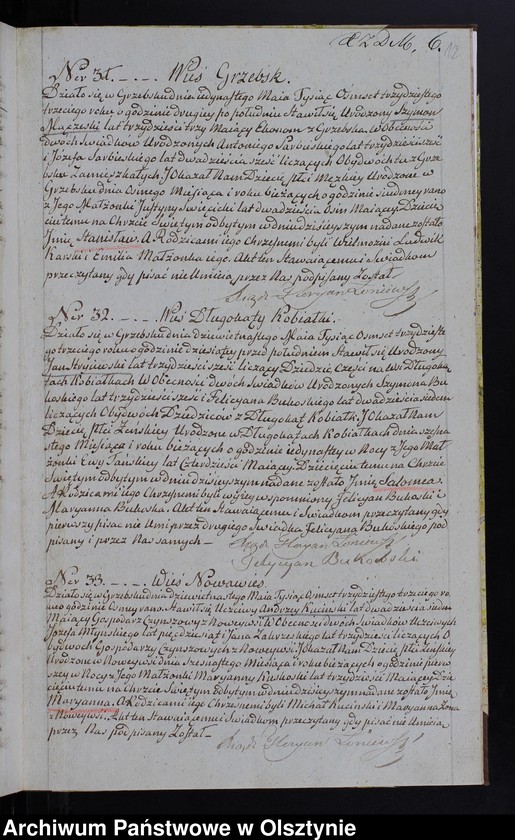 XZDM, 6.
12
Ner 31. _ . _ . Wieś Grzebsk.
Działo się w Grzebsku dnia iedynastego Maia Tysiąc Osmset trzydziestego
trzeciego roku o godzinie drugiey po południu Stawił się Urodzony Szymon
lat trzydzieści trzy Maiący Ekonom z Grzebska, W Obecności
dwóch Swiadków Urodzonych Antoniego lat trzydzieści
i Józefa Sarbiskiego lat dwadzieścia sześć liczących Obydwóch tu z Grze-
bska Zamieszkałych. I Okazał Nam Dziecię płci Męzkiey Urodzone w
Grzebsku dnia Osmego Miesiąca i roku bieżących o godzinie siodmey rano
z Jego Małżonki Justyny lat dwadzieścia ośm Maiącey. Dzieci-
ciu temu na Chrzcie Swiętym odbytym w dniu dzisieyszym nadane zostało
Jmie Stanisław. A Rodzicami iego chrzestnemi byli Wielmożni Ludwik
Karski i Emilia Małżonka iego. Akt ten Stawaiącemu i Swiadkom
przeczytany gdy pisać nie Umieią, przez Nas podpisany Został.
Xiądz Floryan
Ner 32. _ . _ . Wieś Długokąty Kobiałki.
Działo się w Grzebsku dnia dziewietnastego Maia Tysiąc Osmset trzydzieste-
go trzeciego roku o godzinie dziesiątey przed południem Stawił się Urodzony
Jan lat trzydzieści sześć liczący Dziedzic Części na Wsi Długoką-
tach Kobiałkach W Obecności dwóch Swiadków Urodzonych Szymona Bu-
koskiego lat trzydzieści sześć i Felicyana Bukoskiego lat dwadzieścia siedem
liczących Obydwóch Dziedziców z Długokąt Kobiałk. I Okazał Nam
Dziecię płci Żeńskiey Urodzone w Długokątach Kobiałkach dnia szesna-
stego Miesiąca i roku bieżących o godzinie iedynastey w Nocy z Jego Mał-
żonki Ewy lat Czterdzieści Maiącey. Dziecięciu temu na Chrzcie
Swiętym odbytym w dniu dzisieyszym nadane zostało Jmie Salomea.
A Rodzicami iego Chrzestnemi byli wspomniony Felicyan Bukoski i
Maryanna Bukoska. Akt ten Stawaiącemu i Swiadkom przeczytany gdy
pierwszy pisać nie Umi przez drugiego Swiadka Felicyana Bukoskiego pod-
pisany i przez Nas samych _
Xiądz Floryan
Felicyan Bukowski
Ner 33. _ . _ . Wieś Nowawieś.
Działo się w Grzebsku dnia dziewietnastego Maia Tysiąc Osmset trzydziestego trzeciego ro-
ku o godzinie Osmey rano. Stawił się Uczciwy Andrzey Kuciński lat dwadzieścia siedem
Maiący Gospodarz Czynszowy z Noweywsi W Obecności dwóch Swiadków Uczciwych
Józefa Młynskiego lat pięćdziesiąt i Jana Zakrzeskiego lat trzydzieści liczących O-
bydwóch Gospodarzy Czynszowych z Noweywsi. I Okazał Nam Dziecię płci Żeńskiey
Urodzone w Noweywsi dnia Szesnastego Miesiąca i roku bieżących o godzinie pierw-
szey w Nocy z Jego Małżonki Maryanny lat trzydzieści Maiącey. Dzie-
cięciu temu na Chrzcie Swiętym odbytym w dniu dzisieyszym nadane zostało Jmie
Maryanna. A Rodzicami iego Chrzestnemi byli Michał Kuciński i Maryanna Zona
z Noweywsi. Akt ten Stawaiącemu i Swiadkom przeczytany gdy pisać nie Umieią
przez Nas podpisany Został _
Xiądz Floryan
Archiwum Państwowe w Olsztynie